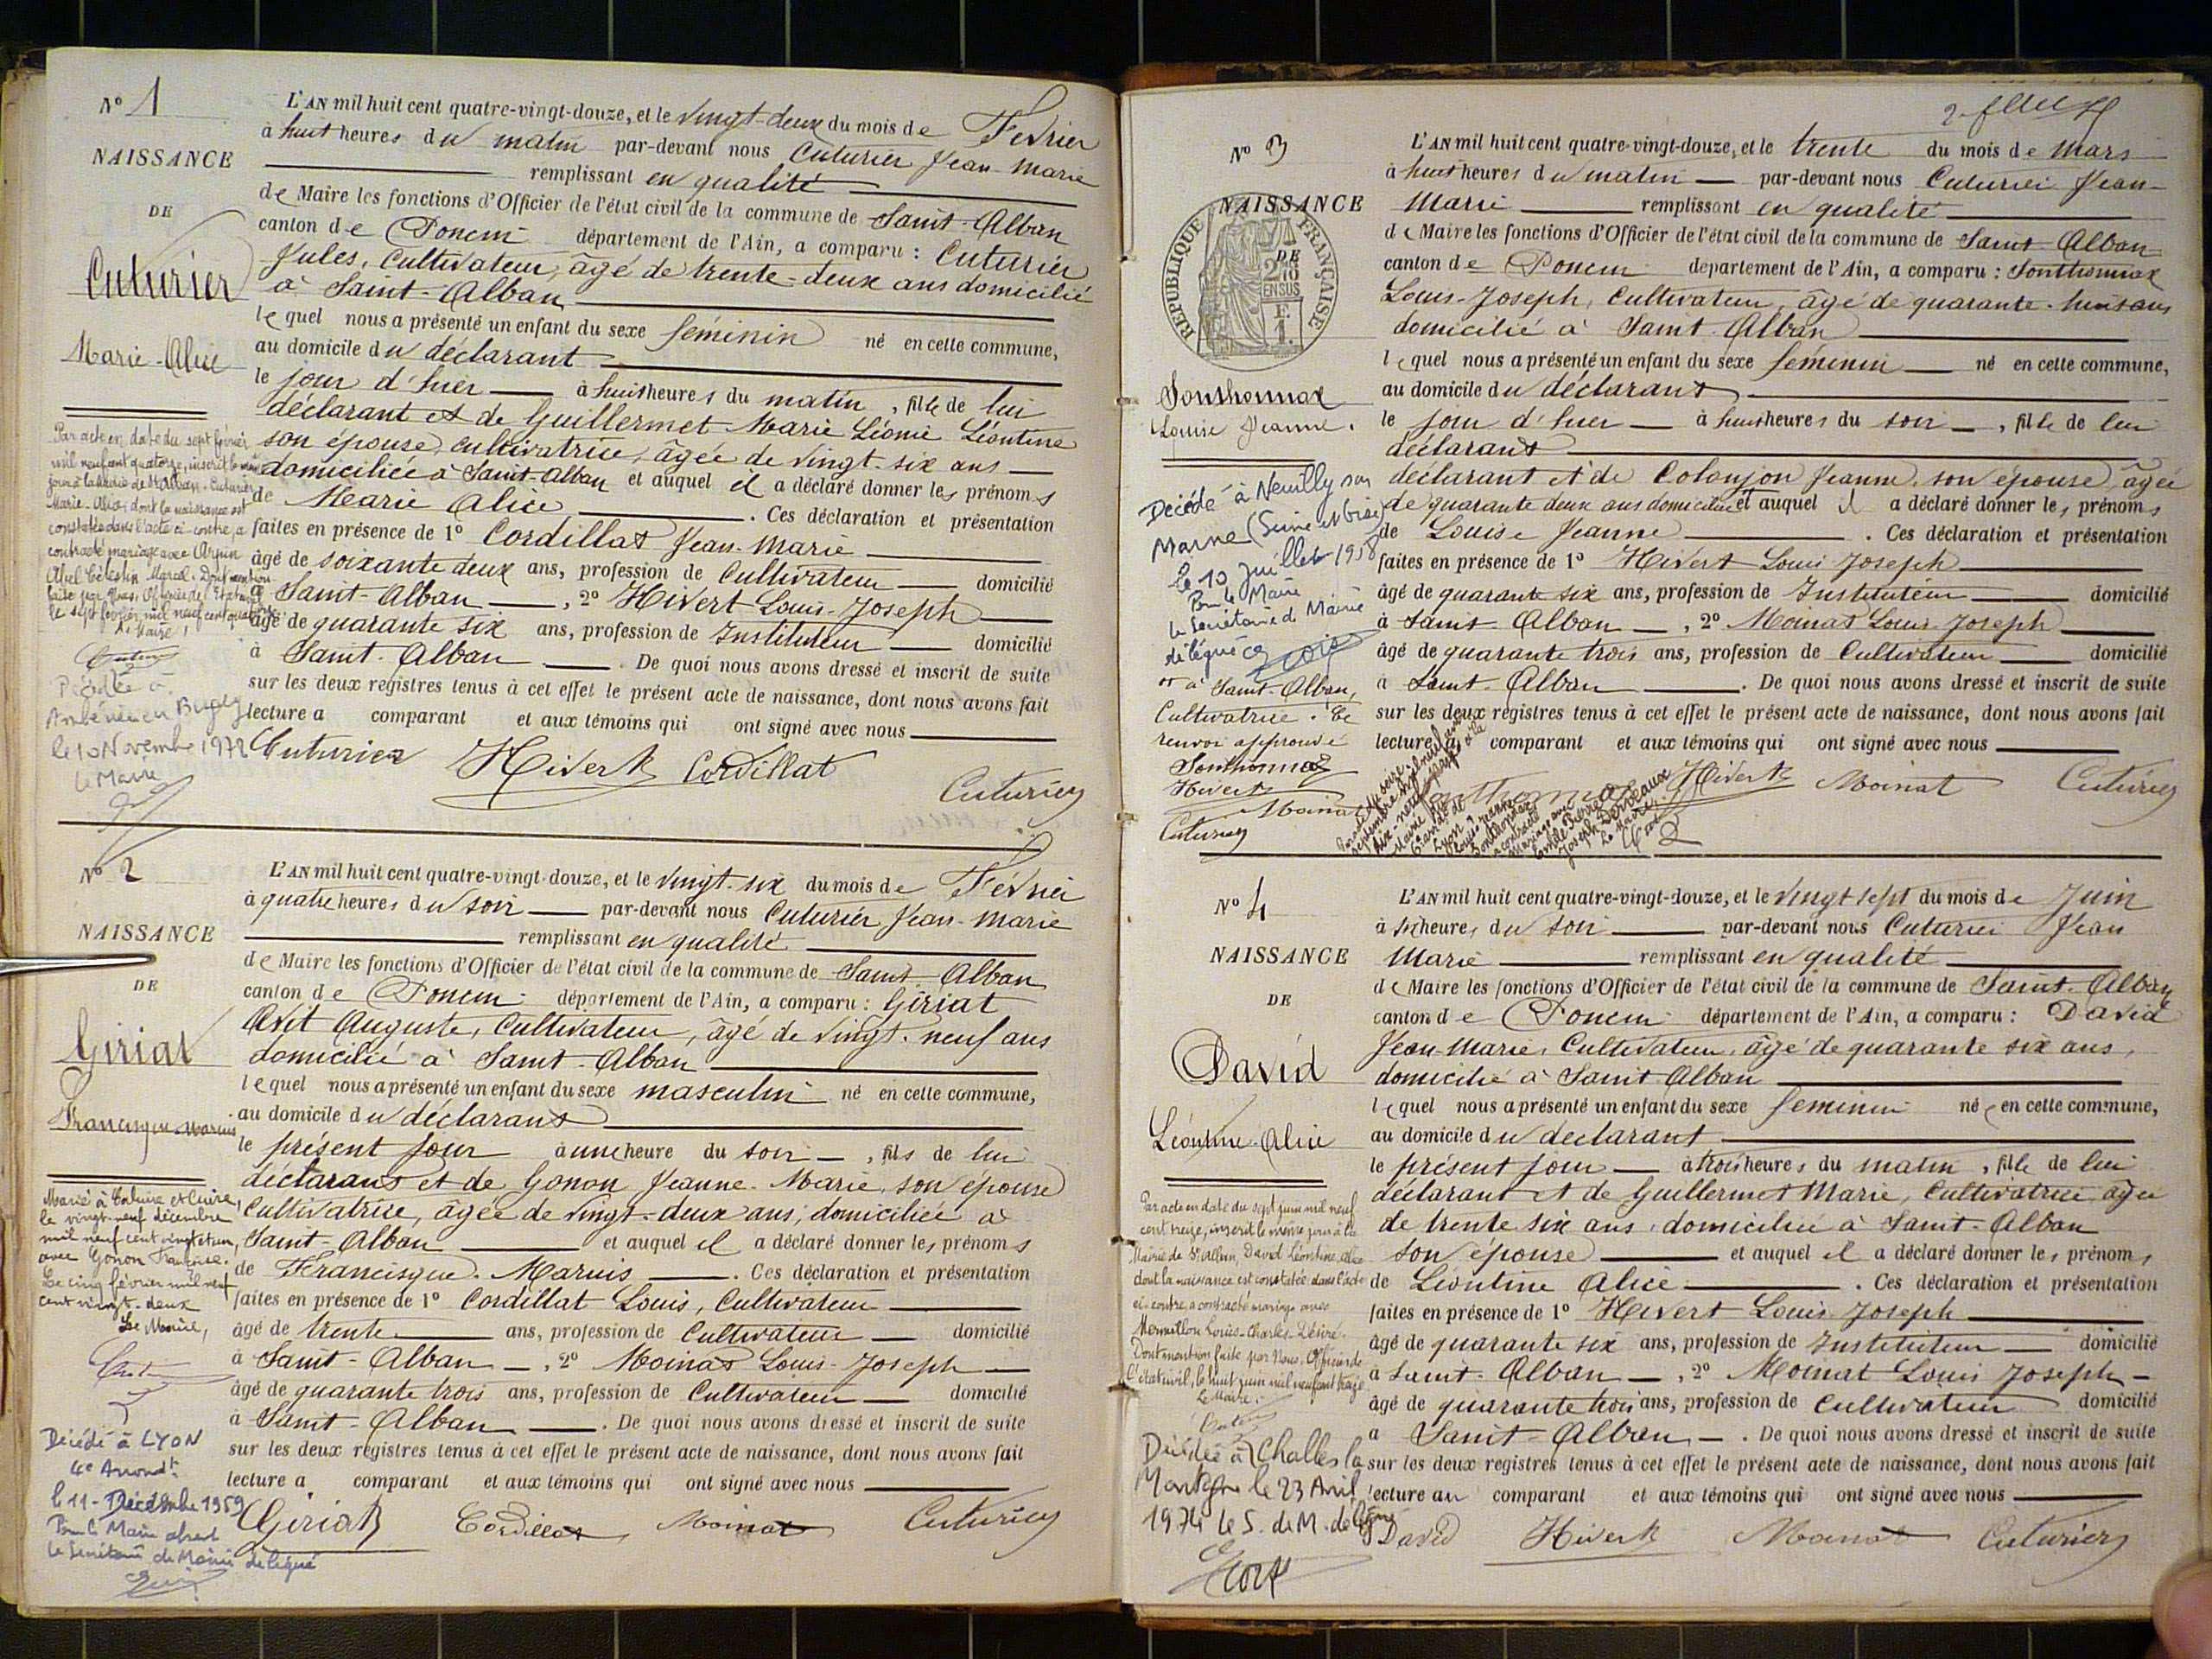 N° 1
NAISSANCE
DE
Cuturier
Marie-Alice
L'AN mil huit cent quatre-vingt-douze, et le vingt-deux du mois de Février
à huit heures du matin par-devant nous Cuturier Jean-Marie
remplissant en qualité
de Maire les fonctions d'Officier de l'état civil de la commune de Saint-Alban
canton de Poncin département de l'Ain, a comparu : Cuturier
Jules, Cultivateur, âgé de trente-deux ans domicilié
à Saint-Alban
lequel nous a présenté un enfant du sexe féminin né en cette commune,
au domicile du déclarant
le jour d'hier à huit heures du matin, fille de lui
déclarant et de Guillermet Marie Léonie Léontine
son épouse, cultivatrice, âgée de vingt-six ans
domiciliée à Saint-Alban et auquel il a déclaré donner les prénoms
de Marie Alice . Ces déclaration et présentation
faites en présence de 1° Cordillat Jean-Marie
âgé de soixante deux ans, profession de Cultivateur domicilié
à Saint-Alban , 2° Hivert Louis-Joseph
âgé de quarante six ans, profession de Instituteur domicilié
à Saint-Alban . De quoi nous avons dressé et inscrit de suite
sur les deux registres tenus à cet effet le présent acte de naissance, dont nous avons fait
lecture a comparant et aux témoins qui ont signé avec nous
Cuturier Hivert Cordillat
Cuturier
Par acte en date du sept février
mil neuf cent quatorze, inscrit le même
jour à la Mairie de St Alban, Cuturier
Marie-Alice, dont la naissance est
constatée dans l'acte ci-contre, a
contracté mariage avec
Abel Célestin Marcel. Dont mention
faite par Nous, Officier de l'Etat civil
le sept février mil neuf cent quatorze
Le Maire,
Décédée à
Ambérieu en Bugey
le 10 Novembre 1972
Le Maire
N° 2
NAISSANCE
DE
Giriat
Francisque-Marius
L'AN mil huit cent quatre-vingt-douze, et le vingt-six du mois de Février
à quatre heures du soir par-devant nous Cuturier Jean-Marie
remplissant en qualité
de Maire les fonctions d'Officier de l'état civil de la commune de Saint-Alban
canton de Poncin département de l'Ain, a comparu : Giriat
Avit Auguste, Cultivateur, âgé de vingt-neuf ans
domicilié à Saint-Alban
lequel nous a présenté un enfant du sexe masculin né en cette commune,
au domicile du déclarant
le présent jour à une heure du soir , fils de lui
déclarant et de Gonon Jeanne-Marie, son épouse
Cultivatrice, âgée de vingt-deux ans, domiciliée à
Saint-Alban et auquel il a déclaré donner les prénoms
de Francisque-Marius . Ces déclaration et présentation
faites en présence de 1° Cordillat Louis, Cultivateur
âgé de trente ans, profession de Cultivateur domicilié
à Saint-Alban , 2° Moinat Louis-Joseph
âgé de quarante trois ans, profession de Cultivateur domicilié
à Saint-Alban . De quoi nous avons dressé et inscrit de suite
sur les deux registres tenus à cet effet le présent acte de naissance, dont nous avons fait
lecture a comparant et aux témoins qui ont signé avec nous
Giriat Cordillat Moinat Cuturier
Marié à Caluire et Cuire,
le vingt-neuf décembre
mil neuf cent vingt et un,
avec Gonon Francine.
Le cinq février mil neuf
cent vingt-deux
Le Maire,
Décédé à LYON
4e Arrondt
le 11 - Décembre 1959
Pour le Maire absent
le Secrétaire de Mairie délégué
N° 3
NAISSANCE
DE
RÉPUBLIQUE FRANÇAISE
EN SUS
Sonthonnax
Louise Jeanne.
L'AN mil huit cent quatre-vingt-douze, et le trente du mois de Mars
à huit heures du matin par-devant nous Cuturier Jean-
Marie remplissant en qualité
de Maire les fonctions d'Officier de l'état civil de la commune de Saint-Alban
canton de Poncin département de l'Ain, a comparu : Sonthonnax
Louis-Joseph, Cultivateur, âgé de quarante-huit ans
domicilié à Saint-Alban
lequel nous a présenté un enfant du sexe féminin né en cette commune,
au domicile du déclarant
le jour d'hier à huit heures du soir , fille de lui
déclarant
déclarant et de Colonjon Jeanne, son épouse, âgée
de quarante deux ans domiciliée et auquel il a déclaré donner les prénoms
de Louise Jeanne . Ces déclaration et présentation
faites en présence de 1° Hivert Louis Joseph
âgé de quarante six ans, profession de Instituteur domicilié
à Saint-Alban , 2° Moinat Louis-Joseph
âgé de quarante trois ans, profession de Cultivateur domicilié
à Saint-Alban . De quoi nous avons dressé et inscrit de suite
sur les deux registres tenus à cet effet le présent acte de naissance, dont nous avons fait
lecture au comparant et aux témoins qui ont signé avec nous
Sonthonnax Hivert Moinat Cuturier
Décédé à Neuilly sur
Marne (Seine et Oise)
le 10 Juillet 1958
Pour le Maire
le Secrétaire de Mairie
délégué
à Saint-Alban,
Cultivatrice. Ce
renvoi approuvé
Sonthonnax
Hivert
Moinat
Cuturier
N° 4
NAISSANCE
DE
David
Léontine-Alice
L'AN mil huit cent quatre-vingt-douze, et le vingt sept du mois de Juin
à six heures du soir par-devant nous Cuturier Jean
Marie remplissant en qualité
de Maire les fonctions d'Officier de l'état civil de la commune de Saint-Alban
canton de Poncin département de l'Ain, a comparu : David
Jean-Marie, Cultivateur, âgé de quarante six ans,
domicilié à Saint-Alban
lequel nous a présenté un enfant du sexe féminin née en cette commune,
au domicile du déclarant
le présent jour à trois heures du matin , fille de lui
déclarant et de Guillermet Marie, Cultivatrice âgée
de trente six ans, domiciliée à Saint-Alban
son épouse et auquel il a déclaré donner les prénoms
de Léontine Alice . Ces déclaration et présentation
faites en présence de 1° Hivert Louis-Joseph
âgé de quarante six ans, profession de Instituteur domicilié
à Saint-Alban , 2° Moinat Louis Joseph
âgé de quarante trois ans, profession de Cultivateur domicilié
à Saint-Alban . De quoi nous avons dressé et inscrit de suite
sur les deux registres tenus à cet effet le présent acte de naissance, dont nous avons fait
lecture au comparant et aux témoins qui ont signé avec nous
David Hivert Moinat Cuturier
Par acte en date du sept juin mil neuf
cent treize, inscrit le même jour à la
Mairie de St Alban, David Léontine Alice
dont la naissance est constatée dans l'acte
ci-contre, a contracté mariage avec
Mermillon Louis-Charles-Désiré.
Dont mention faite par Nous, Officier de
l'état civil, le huit juin mil neuf cent treize
Le Maire :
Décédée à Challes la
Montagne le 23 Avril
1974 le S. de M. délégué